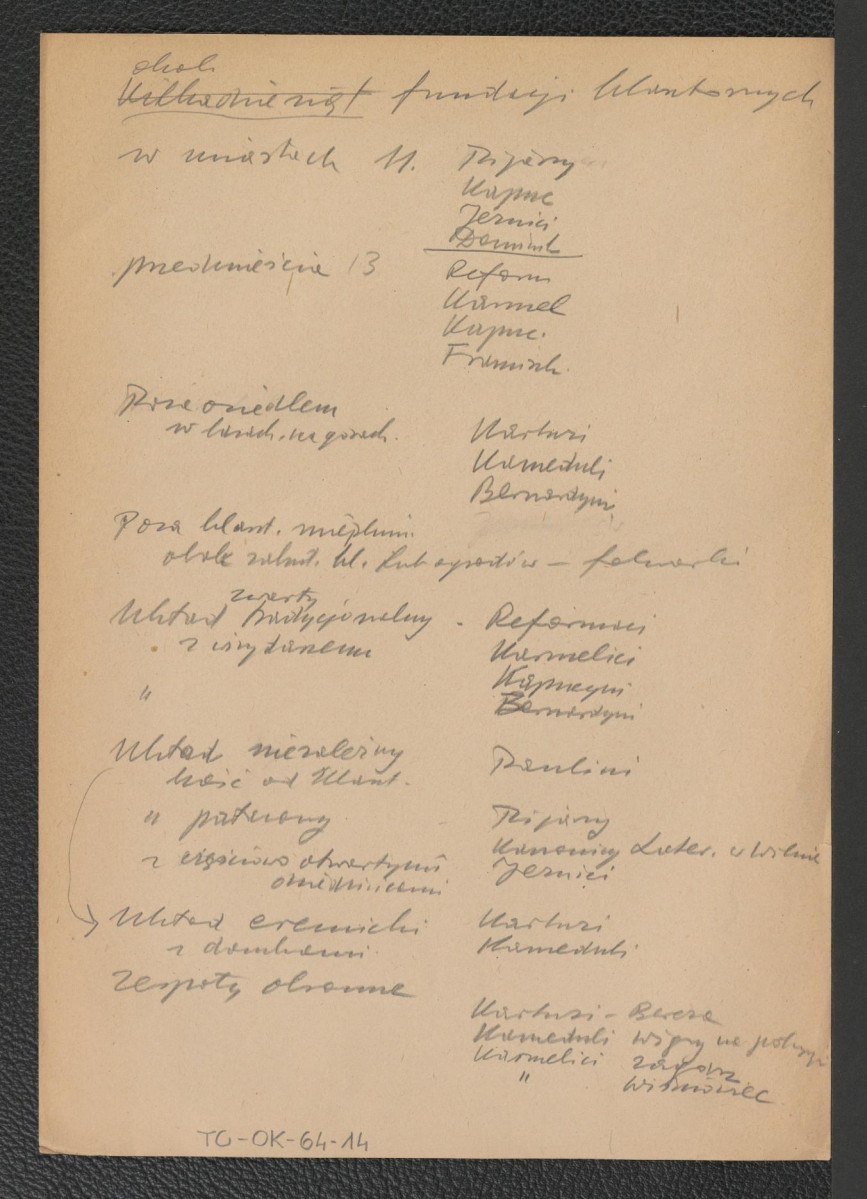 około
Kilkadziesiąt fundacji klasztornych
w miastach 11. Pijarzy
Kapuc
Jezuici
Dominik
przedmieścia 13 Reform
Karmel
Kapuc.
Francisk.
Poza osiedlem
w lasach, na górach. Kartuzi
Kameduli
Bernardyni
Poza klaszt.
obok zabud. kl. lub ogrodów – folwarki
zwarty
Układ tradycjonalny - Reformaci
z wirydarzem Karmelici
" Kapucyni
Bernardyni
Układ niezależny Paulini
kość od klaszt.
" patrony Pijarzy
z częściowo otwartymi Kanonicy Later. w Wilnie
dziedzińcami Jezuici
Układ eremicki Kartuzi
z domkami Kameduli
Zespoły obronne
Kartuzi – Bereza
Kameduli Wigry na
Karmelici Zagórz
" Wiśniowiec
TO-OK-64-14